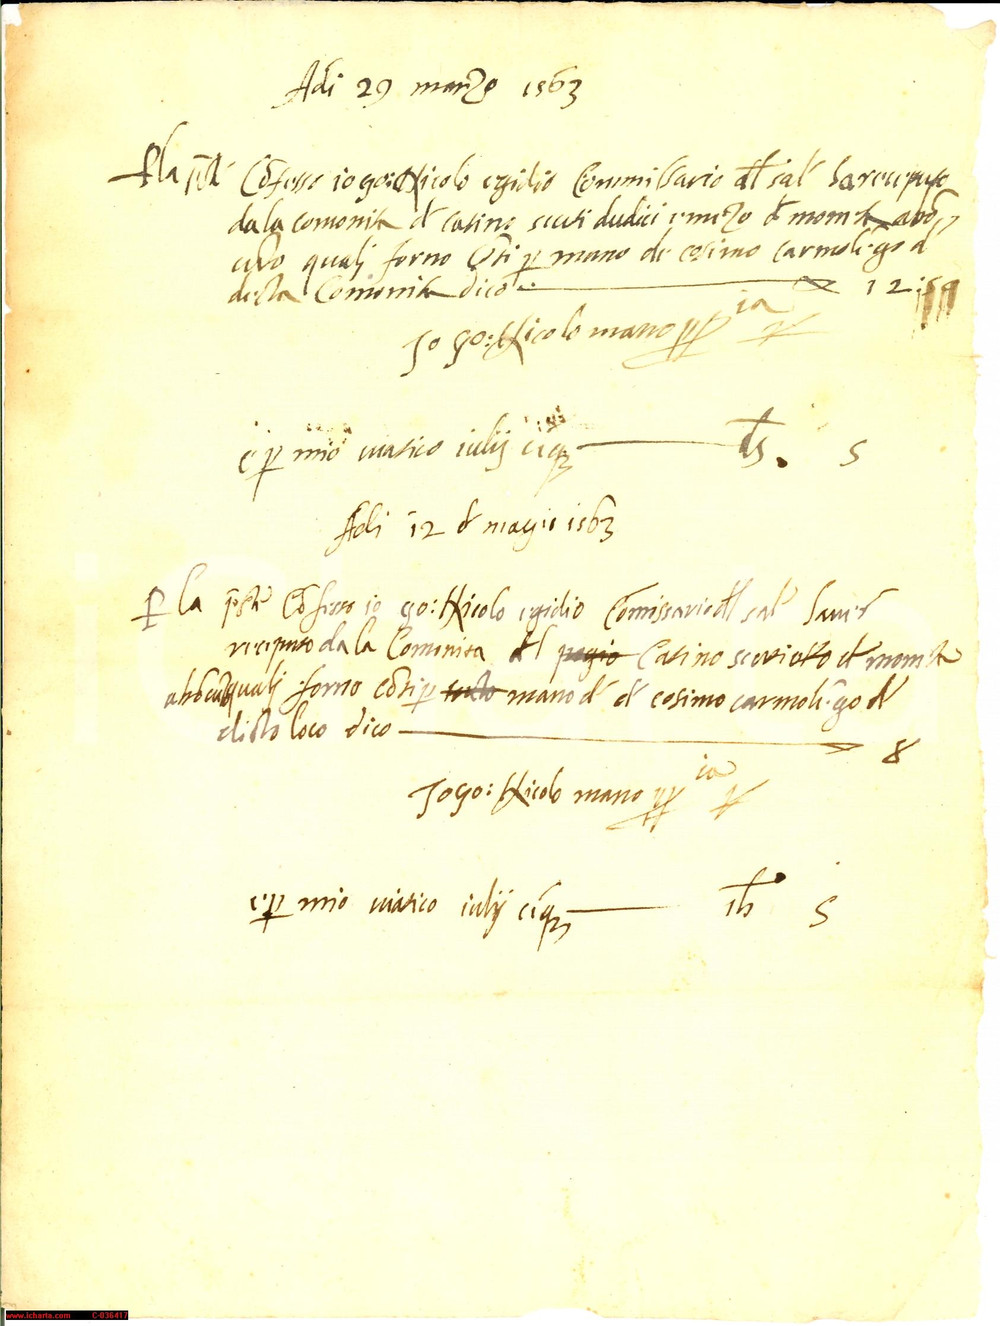 Adi 29 marzo 1563
P la pnte Cōfesso io go: Nicolo egidio Commissario dl sal haver receputo
da la comonita d casino scuti dudici e mezo d moneta a bō
cūto quali forno Cōti p mano de cosimo carmoli go d
decta Comonita dico 12: 50
Io go: Nicolo mano pp ia
e p mio viatico iulij ciq3 5
Adi 12 d magio 1563
P la pnte Cōfesso io go: Nicolo egidio Comissario dl sal haver
receputo da la Cominita dl pogio Casino scuti otto d moneta
a bō cūto quali forno cōti p mano d d cosimo carmoli go d
dicto loco dico 8
Io go: Nicolo mano pp ia
e p mio viatico iulij ciq3 5
www.icharta.com C-036417